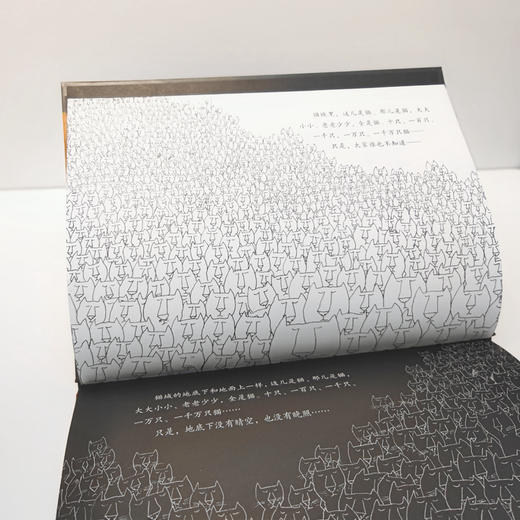 猫城里，这儿是猫，那儿是猫，大大
小小、老老少少，全是猫。十只、一百只、
一千只、一万只、一千万只猫——
只是，大家谁也不知道——
猫城的地底下和地面上一样，这儿是猫，那儿是猫，
大大小小、老老少少，全是猫。十只、一百只、一千只、
一万只、一千万只猫……
只是，地底下没有晴空，也没有晚照……